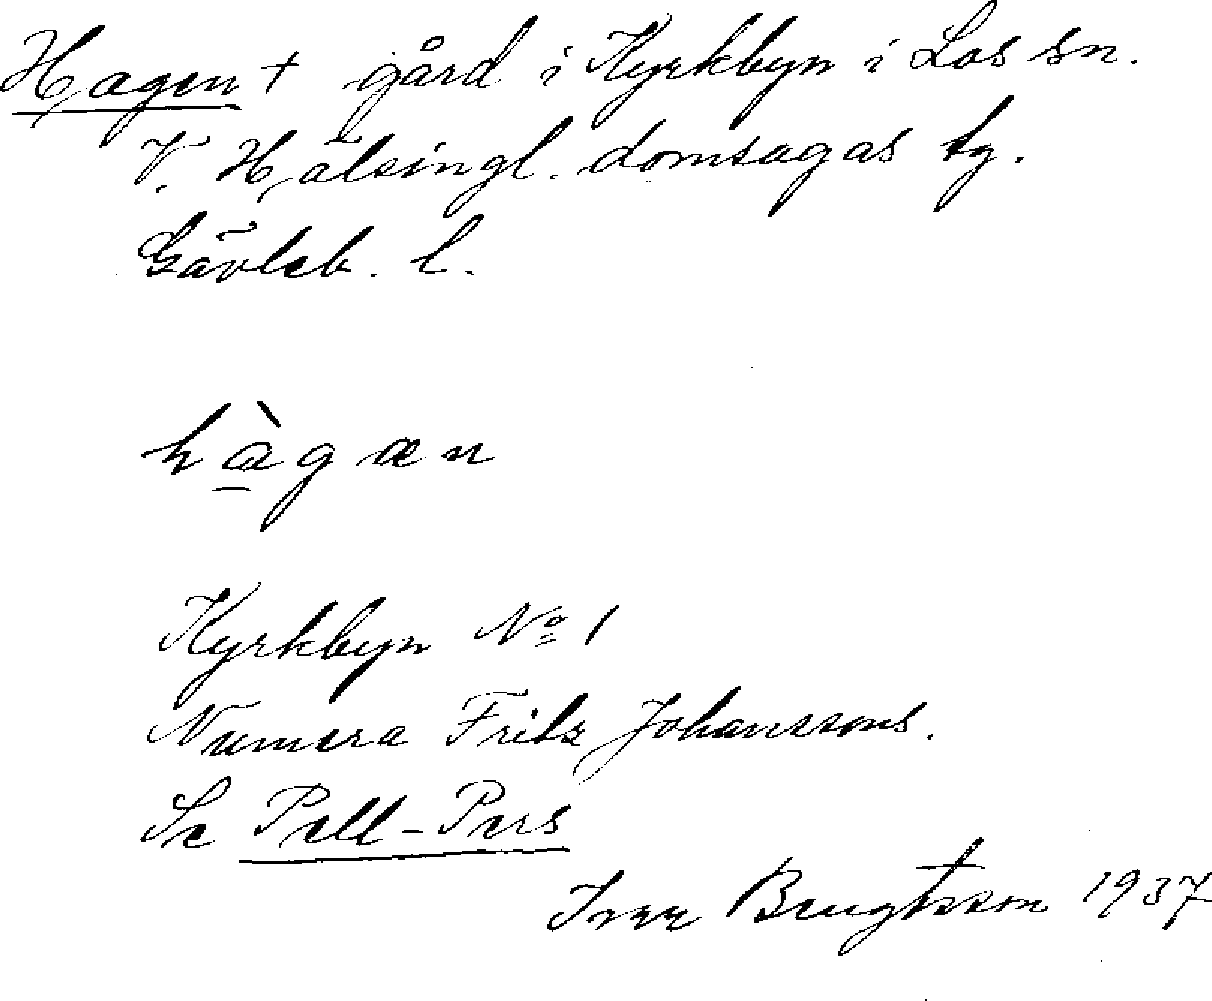 Hagen + gård i Kyrkbyn i Los sn.
V. Hälsingl. domsagas tg.
Gävleb. l.
hàgæn
Kyrkbyn No 1
Numera Fritz Johanssons.
Se Pell-Pers
Ivar Bengtsson 1937